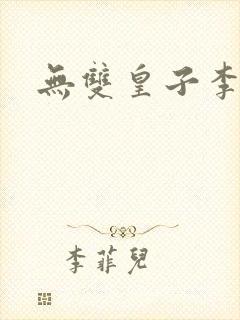 無雙皇子李
李菲兒